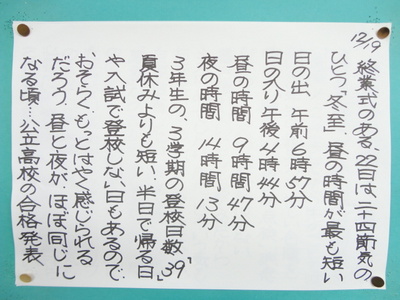 12/19
終業式のある、22日は、二十四節気の
ひとつ「冬至」。昼の時間が最も短い
日の出 午前6時57分
日の入り 午後4時44分
昼の時間 9時間47分
夜の時間 14時間13分
3年生の、3学期の登校日数“39”
夏休みよりも短い。半日で帰る日
や入試で登校しない日もあるので
おそらく、もっとはやく感じられる
だろう。昼と夜が、ほぼ同じに
なる頃…公立高校の合格発表